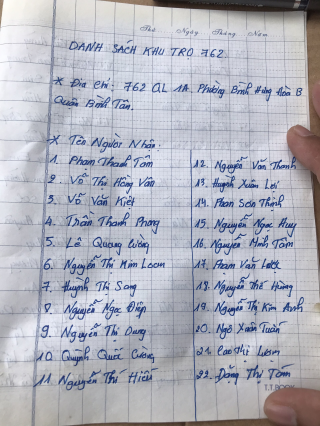 Thứ Ngày Tháng Năm
DANH SÁCH KHU TRỌ 762
* Địa chỉ: 762 QL 1A. Phường Bình Hưng Hòa B
Quân Bình Tân.
* Tên Người Nhận.
1. Phạm Thanh Tâm
2. Võ Thị Hồng Vân
3. Võ Văn Kiệt
4. Trần Thanh Phong
5. Lê Quang
6. Nguyễn Thị Kim Loan
7. Huỳnh Thị Sang
8. Nguyễn Ngọc Điệp
9. Nguyễn Thị Dung
10 Quỳnh Quốc Cường
11. Nguyễn Thị Hiếu
12. Nguyễn Văn Thanh
13. Huỳnh Xuân Lợi
14. Phan Sơn Thịnh
15. Nguyễn Ngọc Huy
16. Nguyễn Minh Tâm
17. Phạm Văn Lượt
18. Nguyễn Thế Hùng
19. Nguyễn Thị Kim Anh
20. Ngô Xuân Tuấn
21. Cao Thị Luom
22. Đặng Thị Tám
T.T BOOK